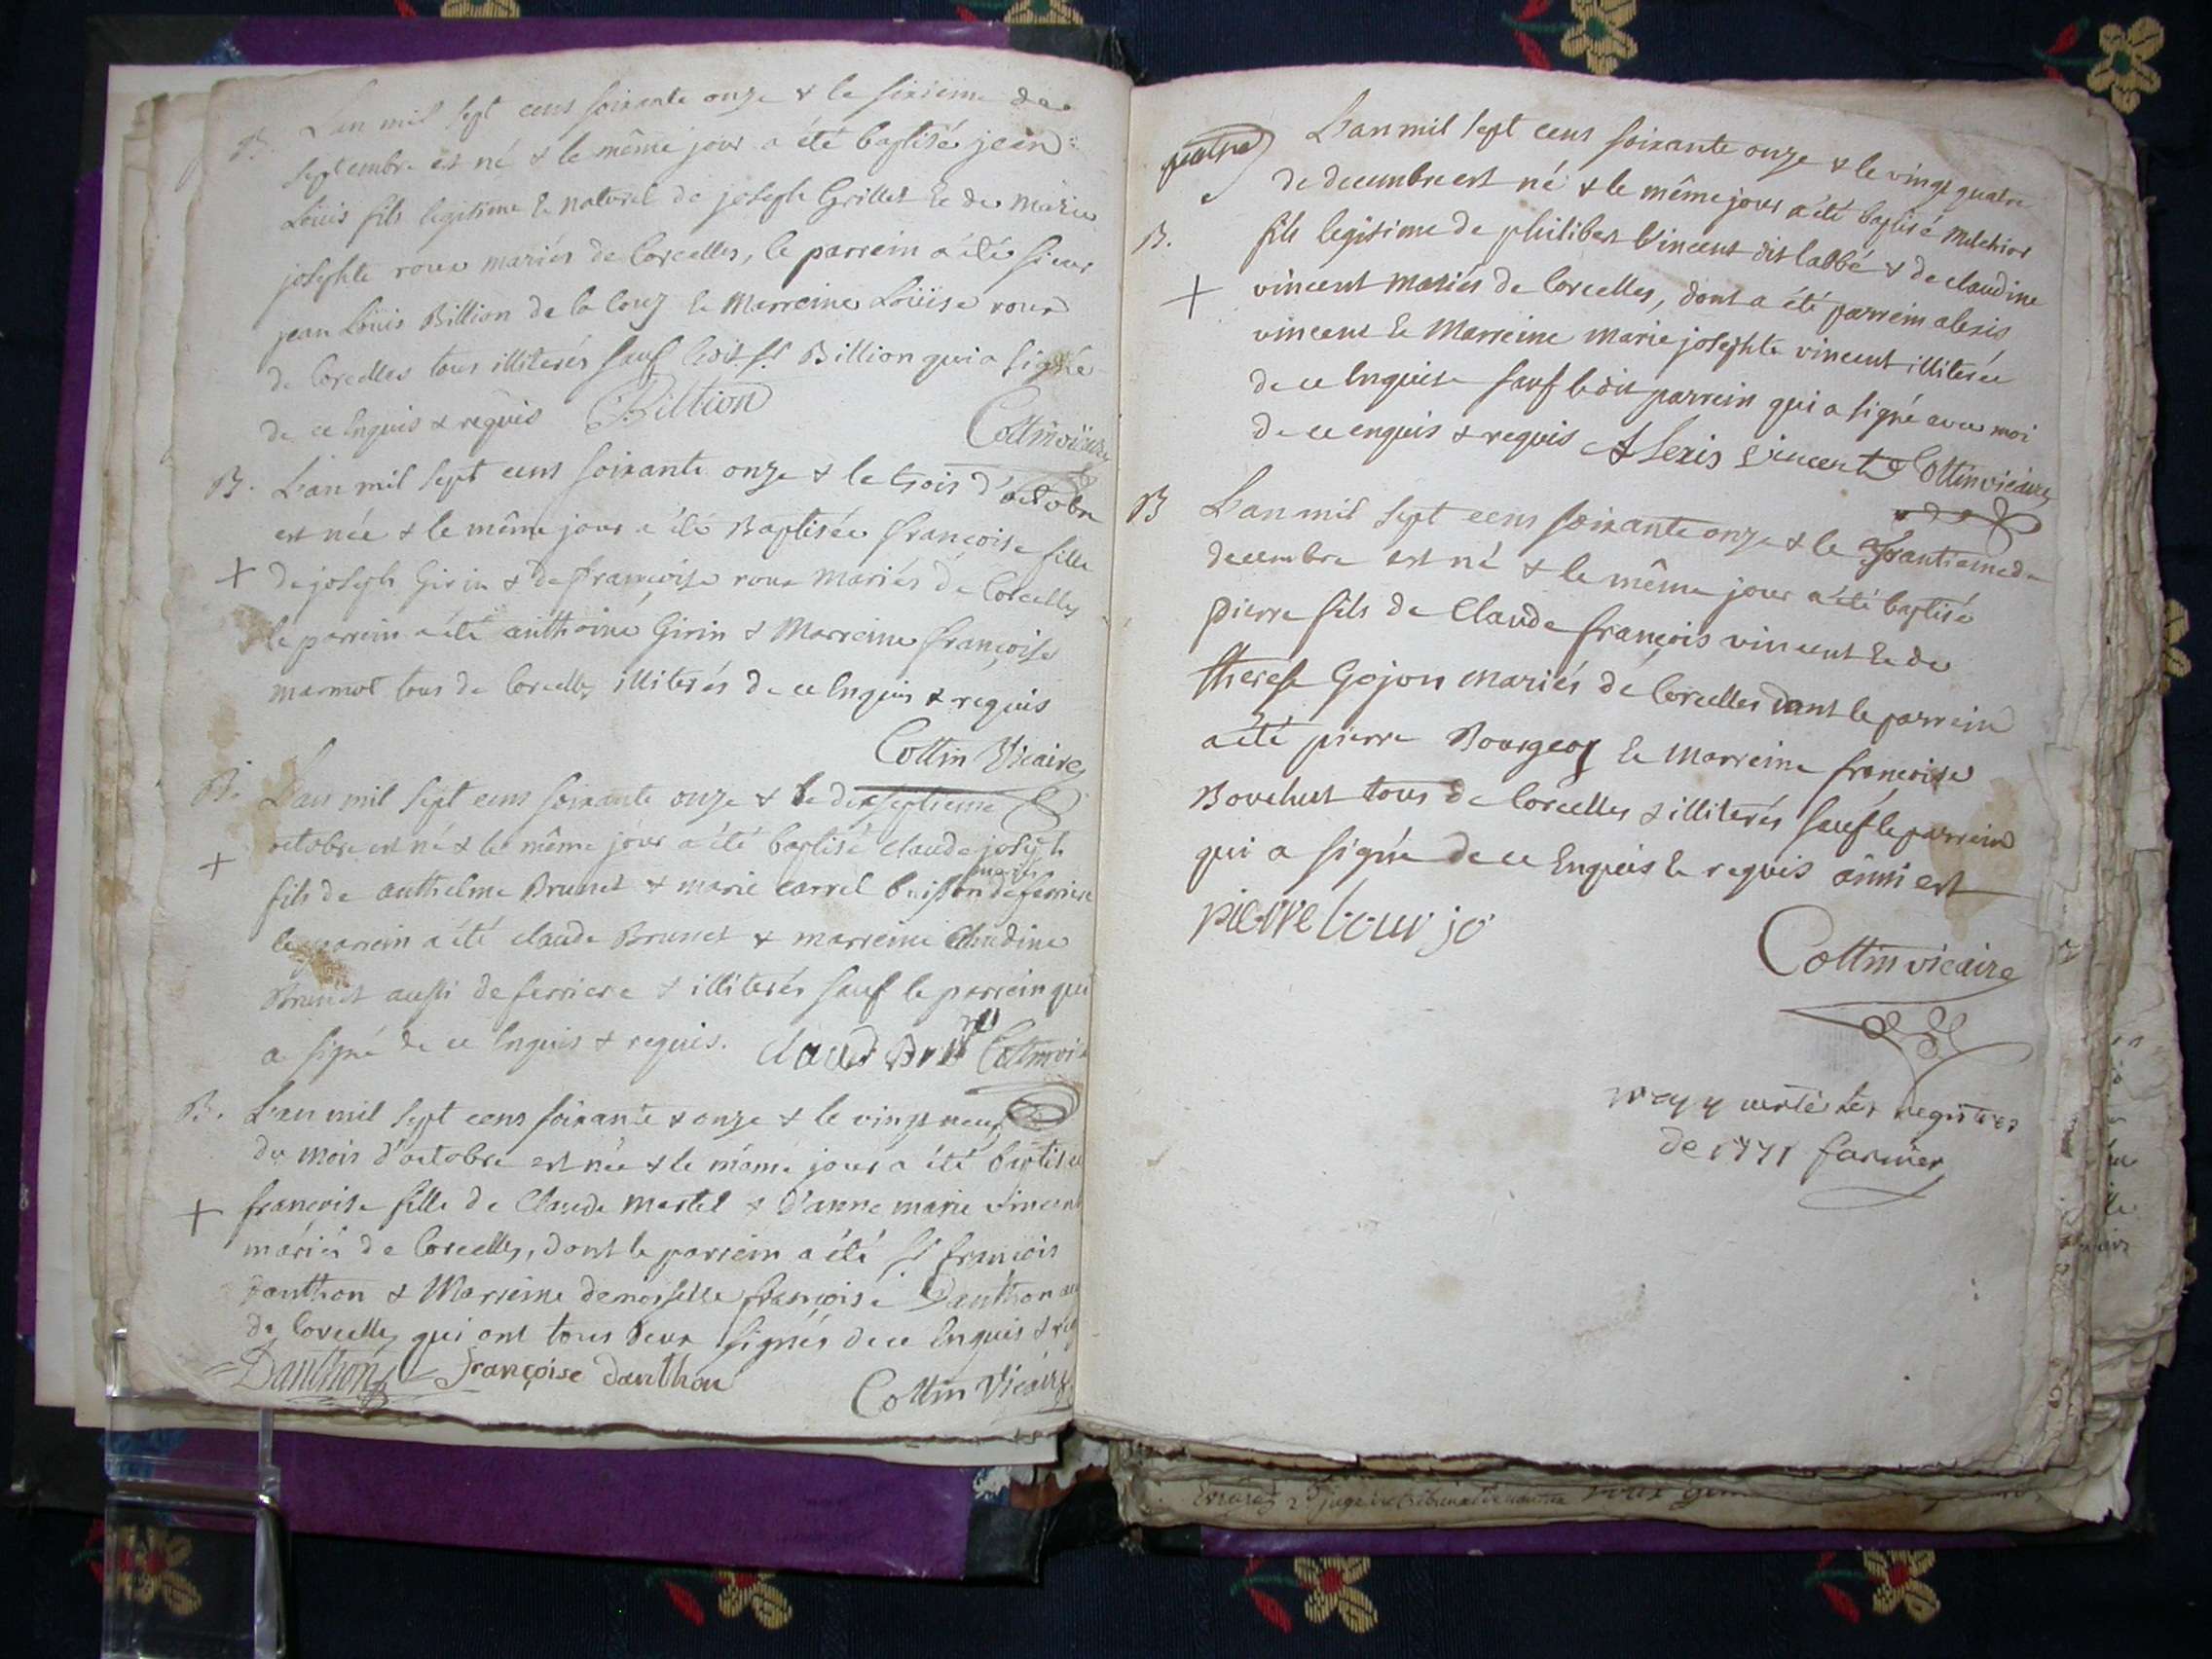 B. L'an mil sept cens soixante onze & le sixieme de
septembre est né & le même jour a été baptisé jean
Loüis fils legitime & naturel de joseph Grillet & de marie
josephte roux mariés de Corcelles, le parrein a été sieur
jean Loüis Billion de la Couz & Marreine Loüise roux
de Corcelles tous illiterés sauf ledit sr. Billion qui a signé
de ce Enquis & requis Billion
Cottin vicaire
B. L'an mil sept cens soixante onze & le trois d'octobre
est née & le même jour a été Baptisée françoise fille
+ de joseph Girin & de françoise roux mariés de Corcelles
le parrein a été anthoine Girin & Marreine françoise
marmot tous de Corcelles illiterés de ce Enquis & requis
Cottin Vicaire
B. L'an mil sept cens soixante onze & le dixseptieme
+ octobre est né & le même jour a été baptisé claude joseph
mariés
fils de anthelme Brunet & marie carrel buisson de ferriere
le parrein a été claude Brunet & marreine Claudine
Brunet aussi de ferriere & illiterés sauf le parrein qui
a signé de ce Enquis & requis. Claude Cottin
B. L'an mil sept cens soixante & onze & le vingt neuf
du mois d'octobre est née & le même jour a été baptisée
+ françoise fille de Claude martel & d'anne marie vincent
mariés de Corcelles, dont le parrein a été sr françois
Danthon & Marreine demoiselle françoise Danthon
de Corcelles qui ont tous deux signés de ce Enquis &
Danthon françoise danthon
Cottin Vicaire
quatre L'an mil sept cens soixante onze & le vingt quatre
de decembre est né & le même jour a été baptisé Melchior
B. fils legitime de philibert Vincent dit labbé & de claudine
+ vincent mariés de Corcelles, dont a été parrein alexis
vincent & Marreine marie josephte vincent illiterée
de ce Enquise sauf ledit parrein qui a signé avec moi
de ce enquis & requis Alexis vincent Cottin vicaire
B L'an mil sept cens soixante onze & le trantieme de
decembre est né & le même jour a été baptisé
pierre fils de Claude françois vincent & de
therese Gojon mariés de Corcelles dont le parrein
a été pierre Bourgeoy & Marreine françoise
Bouchut tous de Corcelles & illiterés sauf le parrein
qui a signé de ce Enquis & requis ainsi est
pierre bourjo
Cottin vicaire
verité les registres
de 1771 farnier